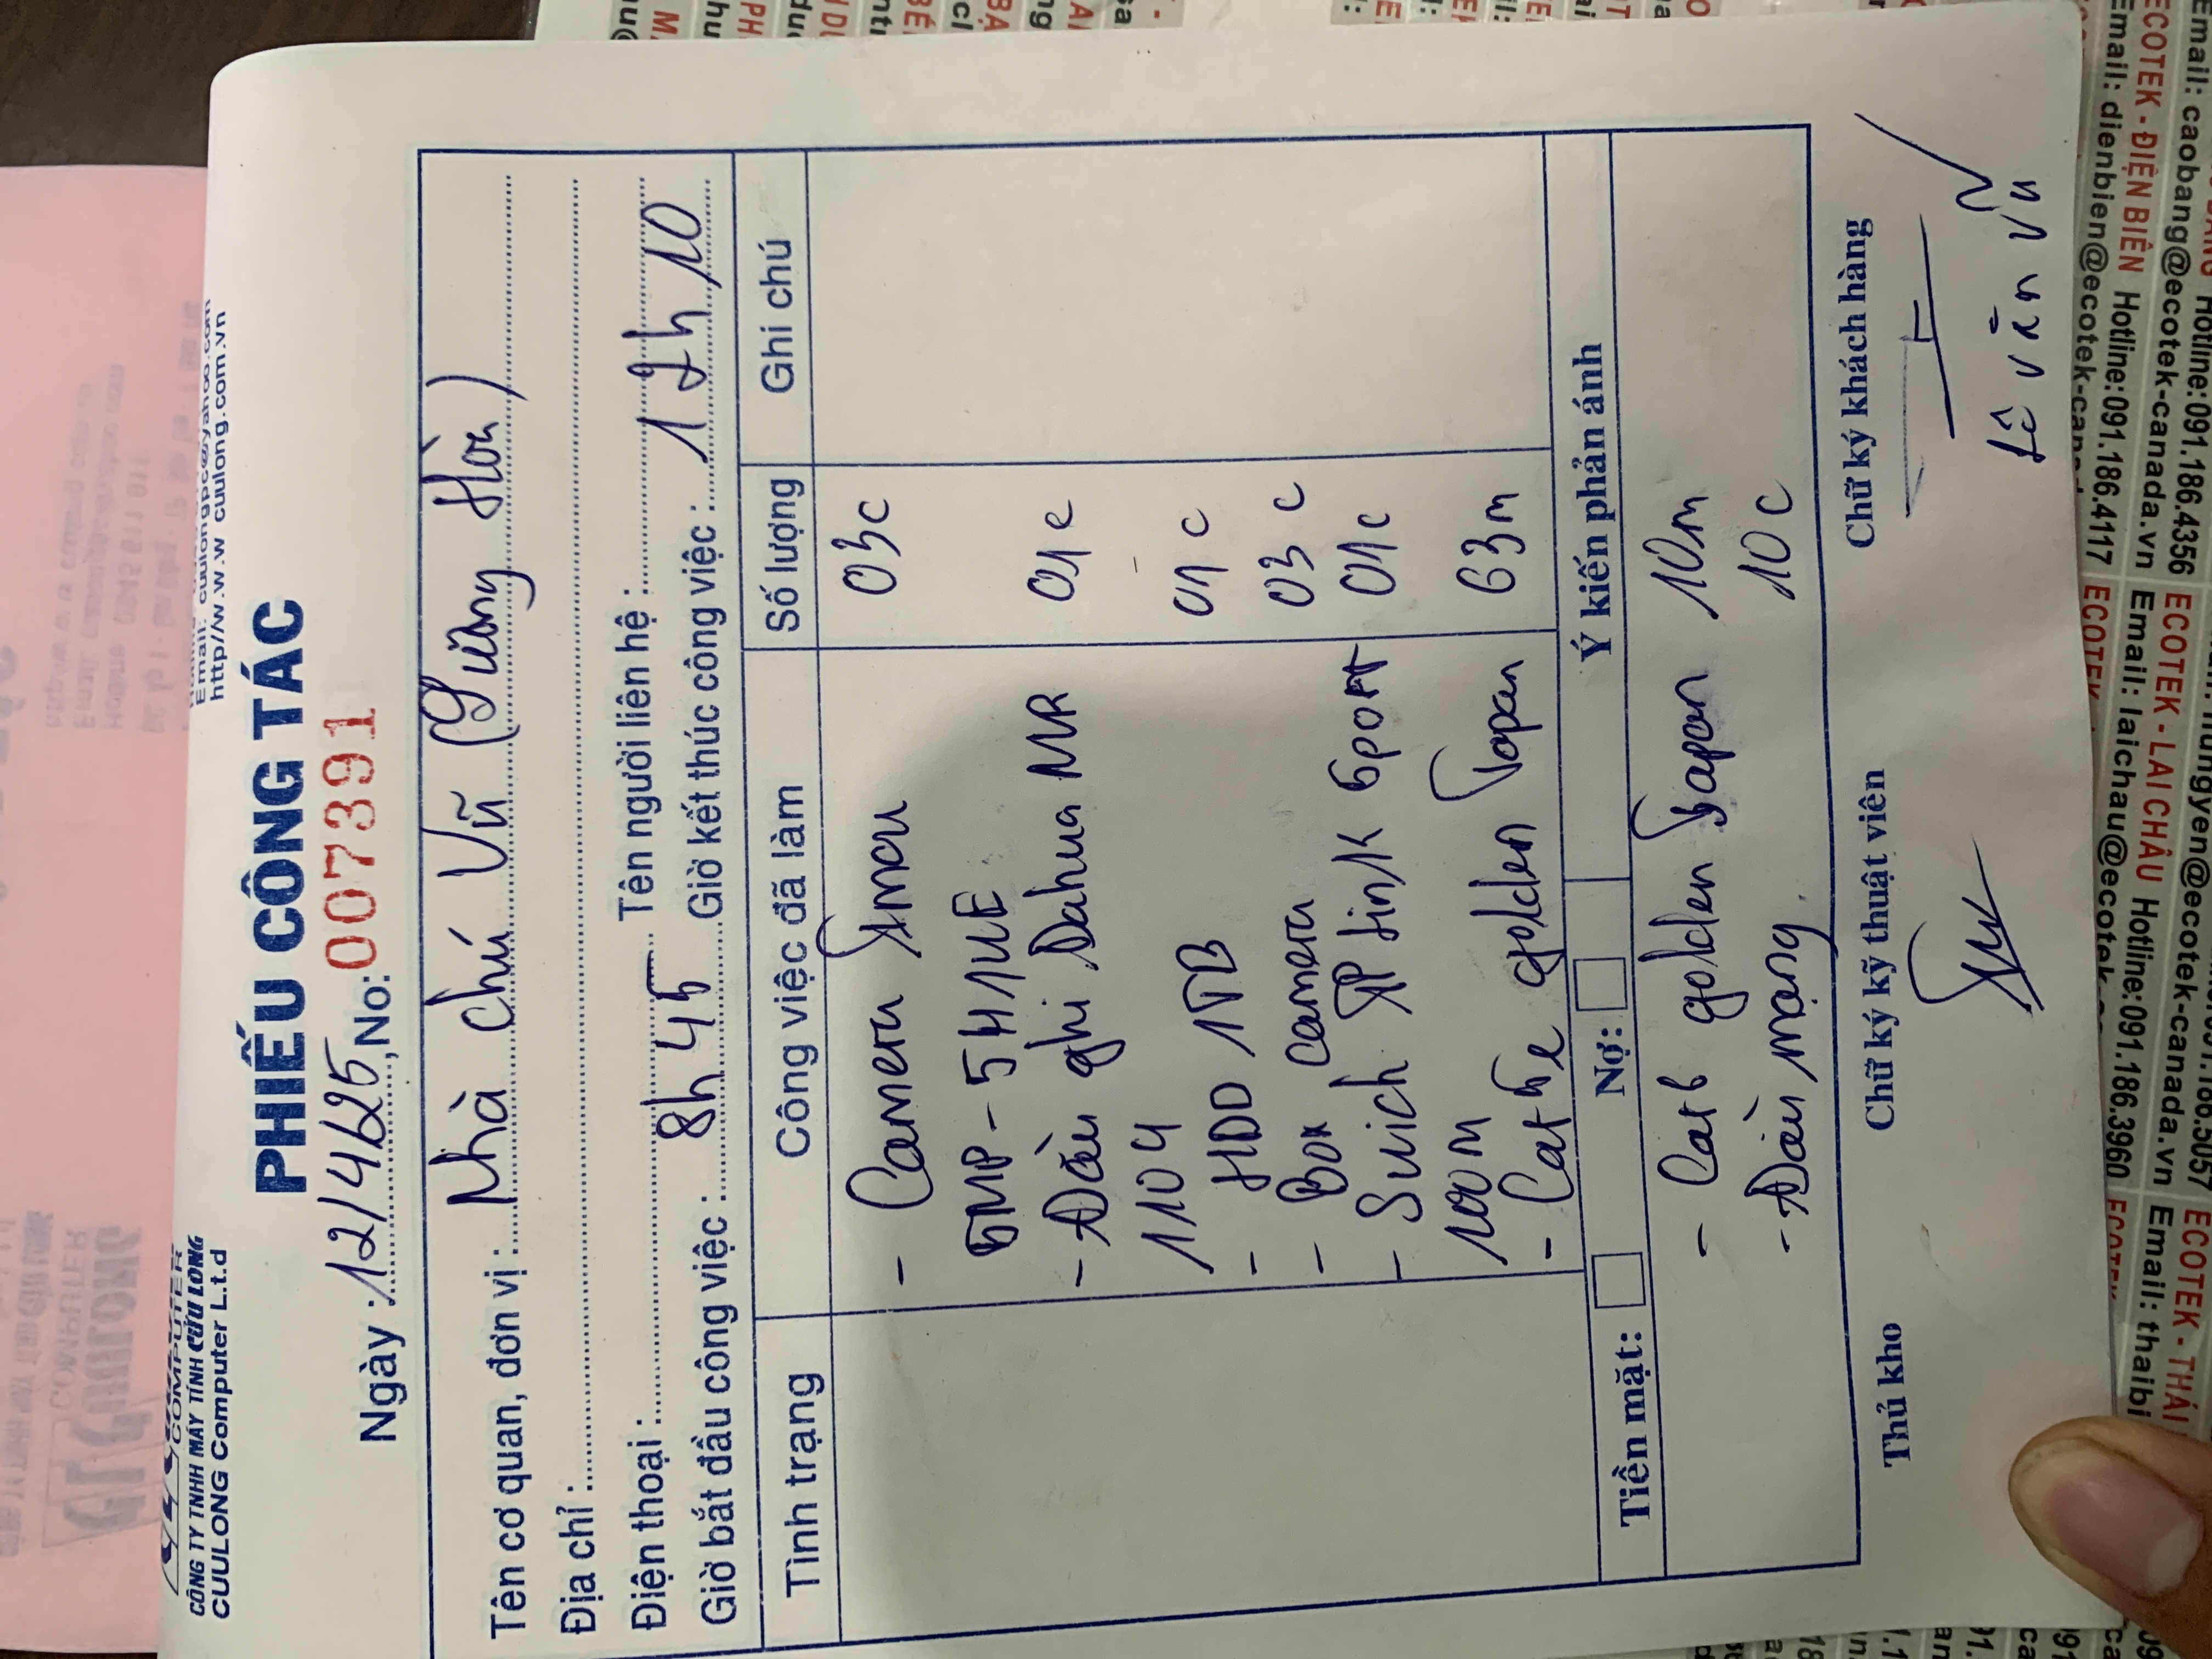 CÔNG TY TNHH MÁY TÍNH CỬU LONG
CUULONG Computer L.t.d
Email: cuulongpc@yahoo.com
http//w.w.w cuulong.com.vn
PHIẾU CÔNG TÁC
Ngày : 12/4/25, No: 007391
Tên cơ quan, đơn vị : Nhà chú Vũ (Dường Hòa)
Địa chỉ :
Điện thoại : Tên người liên hệ :
Giờ bắt đầu công việc : 8h45 Giờ kết thúc công việc : 12h10
Tình trạng Công việc đã làm Số lượng Ghi chú
- Camera 03c
5MP - 541UE
- Đầu ghi Dahua 01c
1104
- HDD 1TB 01c
- Box camera 03c
- Suich TP Link 5port 01c
100M
- Cat 5e golden Japan 63m
Tiền mặt: Nợ: Ý kiến phản ánh
- Cat 6 golden Japan 10m
- Đầu mạng 10c
Thủ kho Chữ ký kỹ thuật viên Chữ ký khách hàng
Lê văn Vũ
Email: dienbien@ecotek-canada.vn
ECOTEK - ĐIỆN BIÊN Hotline:091.186.4356
Email: caobang@ecotek-canada.vn
Hotline:091.186.4117
Email: laichau@ecotek-canada.vn
ECOTEK - LAI CHÂU Hotline:091.186.3960